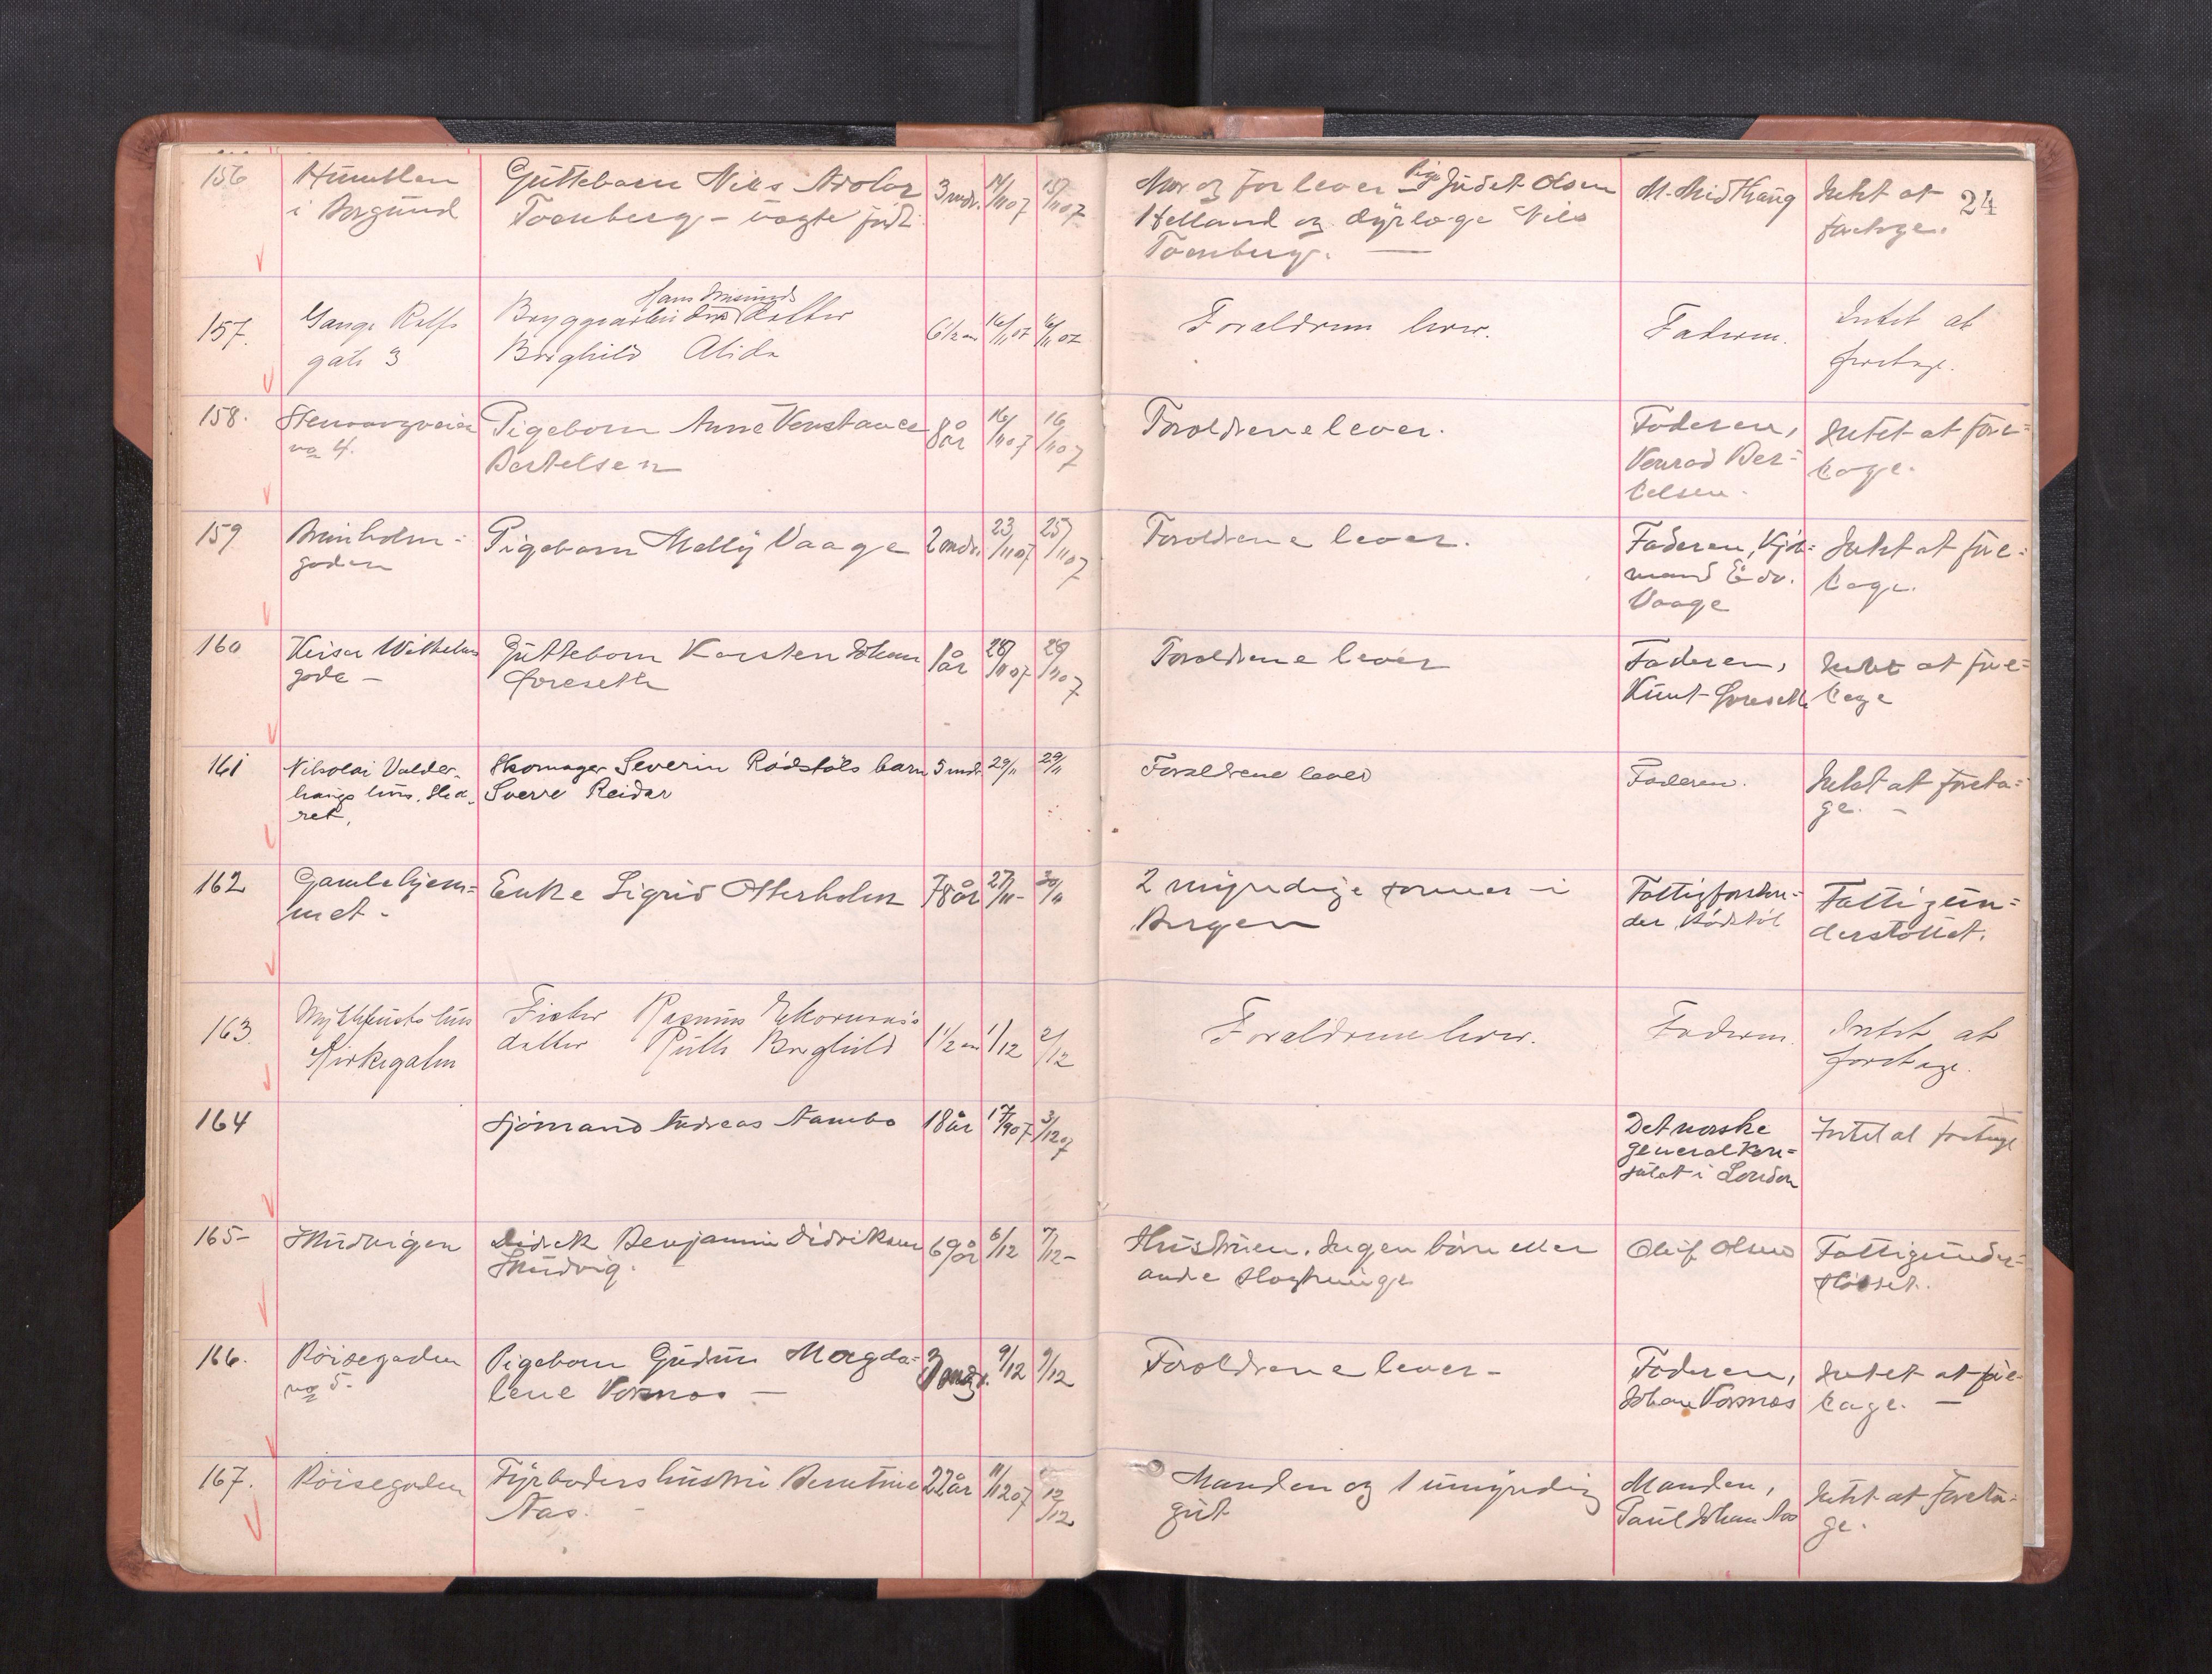 24
156 Humblen i Borgund
Gutteborn Nils Adolar
Toenberg - uægte født
3 mdr. 14/11 07 15/11 07
Mor og far lever Pige Judet Olsen
Helland og dyrlæge Nils
Toenberg. —
M. Midthaug
Intet at
foretage.
157. Gange Rolfs
gate 3
Hans Amunds
Bryggearbeiders datter
Borghild Alida
6 1/2 m 16/11 07 16/11 07
Forældrene lever.
Faderen.
Intet at
foretage.
158. Stenvaagveien
no 4.
Pigeborn Anne Konstance
Bertelsen
8 år 16/11 07 16/11 07
Forældrene lever.
Faderen,
Konrad Ber-
telsen.
Intet at fore-
tage.
159 Brunholm-
gaden
Pigeborn Melly Vaage
2 mdr. 23/11 07 25/11 07
Forældrene lever.
Faderen, Kjøb-
mand Edv.
Vaage
Intet at fore-
tage.
160 Keiser Wilhelms
gade -
Gutteborn Karsten Johan
Goreseth
1 år 28/11 07 28/11 07
Forældrene lever
Faderen,
Knut Goreseth
Intet at fore-
tage
161 Nikolai Valder-
haugs hus,
ret.
Skomager Severin Rødstøls barn
Sverre Reidar
5 mdr 29/11 29/11
Forældrene lever
Faderen.
Intet at foreta-
ge. -
162 Gamlehjem-
met -
Enke Sigrid Otterholm
78 år 27/11 - 30/11
2 myndige sønner i
Bergen
Fattigforstan-
der Rødstøl
Fattigun-
derstøttet.
163. hus
Kirkegaten
Fisker Rasmus Ekornæs's
datter Ruth Borghild
1 1/2 m 1/12 2/12
Forældrene lever.
Faderen.
Intet at
foretage.
164
Sjømand Andreas Aambø
18 år 17/9 07 3/12 07
Det norske
generalkon-
sulat i London
Intet at foretage
165 - Skudvigen
Didrik Benjamin Didriksen
Skudvig.
69 år 6/12 7/12 -
Hustruen. Ingen børn eller
andre slægtninge
Oluf Olsen
Fattigunder-
støttet.
166. Røisegaden
no 5.
Pigeborn Gudrun Magda-
lene Vornæs —
9/12 9/12
Forældrene lever -
Faderen,
Johan Vornæs
Intet at fore-
tage. —
167. Røisegaden
Fyrbøders hustru Berntine
Aas. -
22 år 11/12 07 12/12
Manden og 1 umyndig
gut
Manden,
Paul Johan Aas
Intet at foreta-
ge.